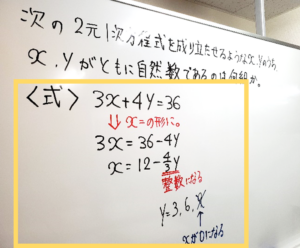 次の2元1次方程式を成り立たせるようなx,yのうち
x,yがともに自然数であるのは何組か。
〈式〉 3x+4y=36
⇓ x=の形に。
3x=36-4y
x=12-4/3y
整数になる
y=3,6,9
↑
xが0になる